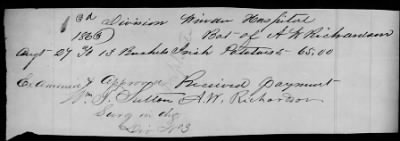 3d Division Winder Hospital
1863 Bot of A W Richardson
Augt 27 To 13 Bushels Irish Potatoes 65.00
Examined & Approved Received Payment
Wm J. Sutton A. W. Richardson
Surg in chg
Div No 3